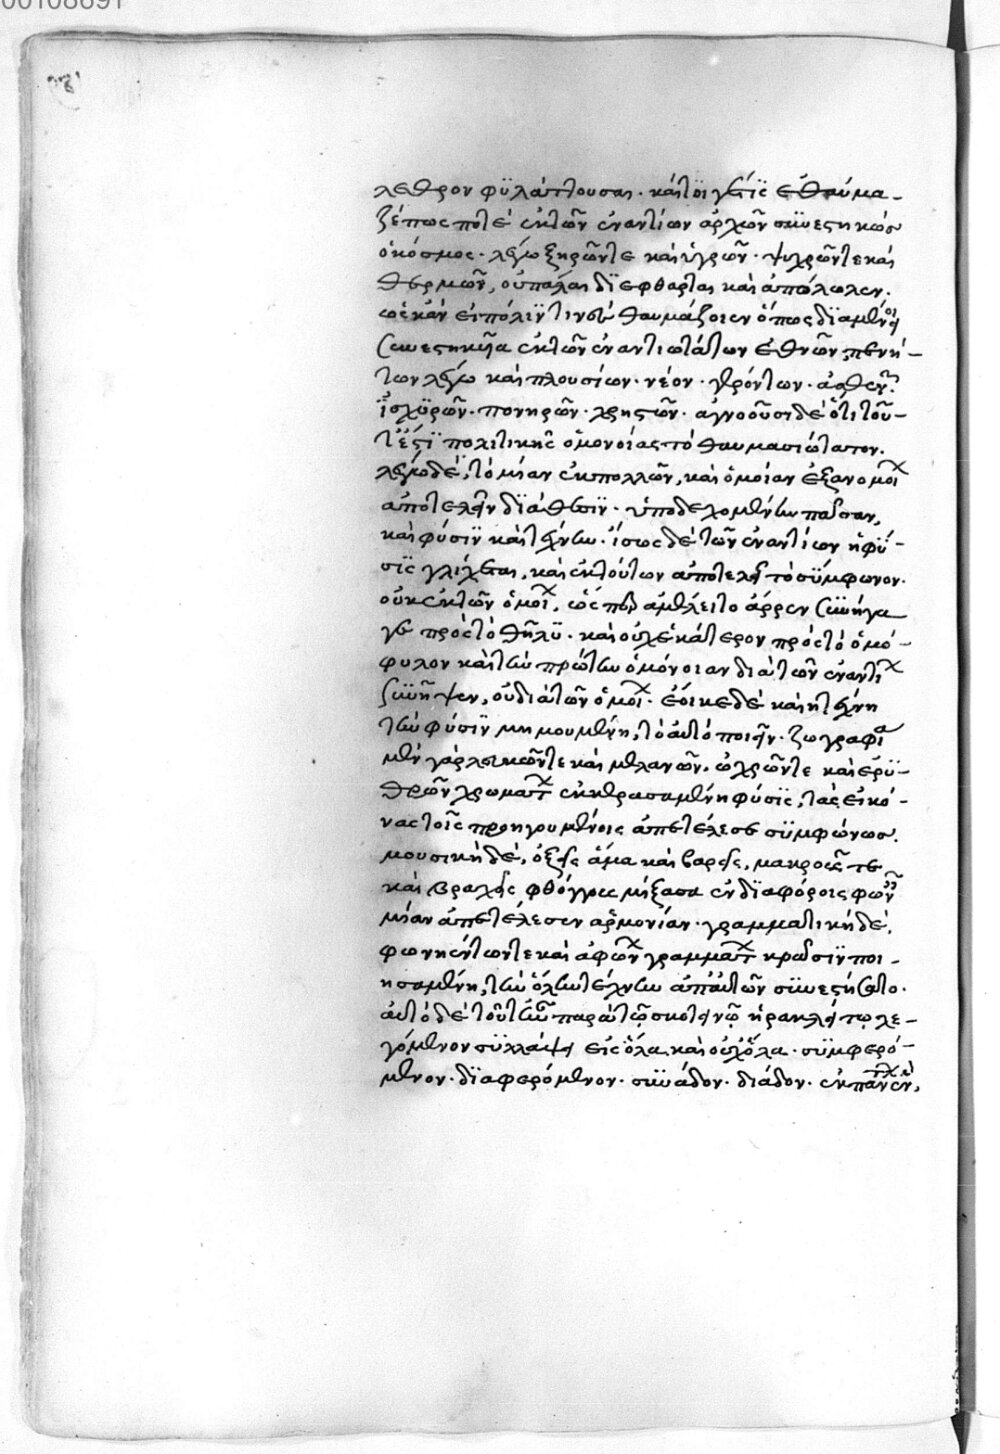 00108691
λεθρον φϋλάττουσαι. καίτοι γε τίς ἐθαύμα-
ζέ πως ποτὲ ἐκ τῶν ἐναντίων ἀρχῶν συνεστηκὼς
ὁ κόσμος. λέγω ξηρῶν τε καὶ ὑγρῶν. ψυχρῶν τε καὶ
θερμῶν, οὐ πάλαι διέφθαρται καὶ ἀπόλωλεν.
ὡς κἂν εἰ πόλιν τινὲς θαυμάζοιεν ὅπως διαμένοι
συνεστηκυῖα ἐκ τῶν ἐναντιωτάτων ἐθνῶν πενή-
των λέγω καὶ πλουσίων. νέον. γερόντων. ἀσθενῶν.
ἰσχϋρῶν. πονηρῶν. χρηστῶν. ἀγνοοῦσι δὲ ὅτι τοῦ-
τ' ἔστι πολιτικῆς ὁμονοίας τὸ θαυμασιώτατον.
λέγω δὲ, τὸ μίαν ἐκ πολλῶν, καὶ ὁμοίαν ἐξ ἀνομοί
ἀποτελεῖν διάθεσιν. ὑποδεχομένην πᾶσαν,
καὶ φύσιν καὶ τέχνην. ἴσως δὲ τῶν ἐναντίων ἡ φύ-
σις γλίχεται, καὶ ἐκ τούτων ἀποτελεῖ τὸ σύμφωνον.
οὐκ ἐκ τῶν ὁμοί. ὥσπερ ἀμέλει τὸ ἄρρεν συνήγα
γε πρὸς τὸ θῆλϋ. καὶ οὐχ ἑκάτερον πρὸς τὸ ὁμό-
φυλον καὶ τὴν πρώτην ὁμόνοιαν διὰ τῶν ἐναντί
συνῆψεν, οὐ διὰ τῶν ὁμοί. ἔοικε δὲ καὶ ἡ τέχνη
τὴν φύσιν μιμουμένη, τὸ αὐτὸ ποιεῖν. ζωγραφία
μὲν γὰρ λευκῶν τε καὶ μελανῶν. ὠχρῶν τε καὶ ἐρυ-
θρῶν χρωμάτ ἐγκερασαμένη φύσις, τὰς εἰκό-
νας τοῖς προηγουμένοις ἀπετέλεσε συμφώνως.
μουσικὴ δὲ, ὀξεῖς ἅμα καὶ βαρεῖς, μακρούς τε
καὶ βραχεῖς φθόγγους μίξασα ἐν διαφόροις φων
μίαν ἀπετέλεσεν ἁρμονίαν. γραμματικὴ δὲ,
φωνηέντων τε καὶ ἀφώνων γραμμάτ κρᾶσιν ποι-
ησαμένη, τὴν ὅλην τέχνην ἀπ' αὐτῶν συνεστήσατο.
αὐτὸ δὲ τοῦτ' ἦν παρὰ τῷ σκοτεινῷ ἡρακλείτῳ λε-
γόμενον συλλάψει εἰς ὅλα καὶ οὐχ ὅλα. συμφερό-
μενον. διαφερόμενον. συνάδον. διάδον. ἐκ πάντ ἓν,